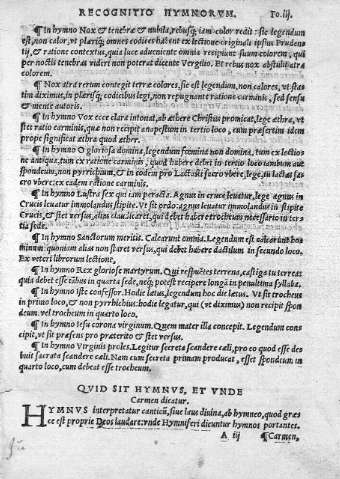 RECOGNITIO HYMNORVM. Fo.iij.
¶ In hymno Nox & tenebræ & nubila, rebusq; iam color redit: sic legendum
est, non calor, vt pleriq; omnes codices habent ex lectione originale ipsius Prudentij,
& ratione contextus, quia luce adueniente omnia recipiunt suum colorem, qui
per noctis tenebras videri non poterat dicente Vergilio. Et rebus nox abstulit atra
colorem.
¶ Nox atra rerum contegit terræ colores. sic est legendum, non calores, vt statim
diximus, in plerisq; codicibus legi, non repugnante ratione carminis, sed sensu
& mente autoris.
¶ In hymno Vox ecce clara intonat, ab æthere Christus promicat, lege æthra, vt
stet ratio carminis, quæ non recipit anapestum in tertio loco, cum præsertim idem
prope significat æthra quod æther.
¶ In hymno O gloriosa domina, legendum fœmina non domina, tum ex lectione
antiqua, tum ex ratione carminis, quod habere debet in tertio loco iambum aut
spondeum, non pyrrichium, & in eodem pro Lactasti sacro vbere, lege, lactas sacro
vbere: ex eadem ratione carminis.
¶ In hymno Lustra sex qui iam peracta. Agnus in cruce leuatur, lege agnus in
Crucis leuatur immolandus stipite. Vt sit ordo: agnus leuatur immolandus in stipite
Crucis, & stet versus, alias claudicaret, qui debet habere trochæum necessario in tertia
sede.
¶ In hymno Sanctorum meritis. Calcarunt omnia. Legendum est
hominum: quoniam alias non staret versus, qui debet habere dactilum in secundo loco.
Ex veteri librorum lectione.
¶ In hymno Rex gloriose martyrum. Qui respuentes terrena, castiga tu terreas
quia debet esse iambus in quarta sede, neq; potest recipere longā in penultima syllaba.
¶ In hymno Iste confessor. Hodie lætus, legendum hoc die lætus. Vt sit trocheus
in primo loco, & non pyrrhichius: hodie legatur, qui (vt diximus) non recipit spondeum.
vel trocheum in quarto loco.
¶ In hymno Iesu corona virginum. Quem mater illa concepit. Legendum concipit,
vt sit præsens pro præterito & stet versus.
¶ In hymno Virginis proles. Legitur secreta scandere cæli, pro eo quod esse debuit
sacrata scandere cæli. Nam cum secreta primam producat, esset spondeum in
quarto loco, cum debeat esse trocheum.
QVID SIT HYMNVS, ET VNDE
Carmen dicatur.
HYMNVS interpretatur canticū, siue laus diuina, ab hymneo, quod græce
est proprie Deos laudare: vnde Hymniferi dicuntur hymnos portantes.
A iij ¶ Carmen.